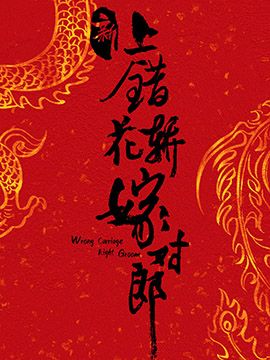 新
上错花轿
嫁对郎
Wrong Carriage
Right Groom